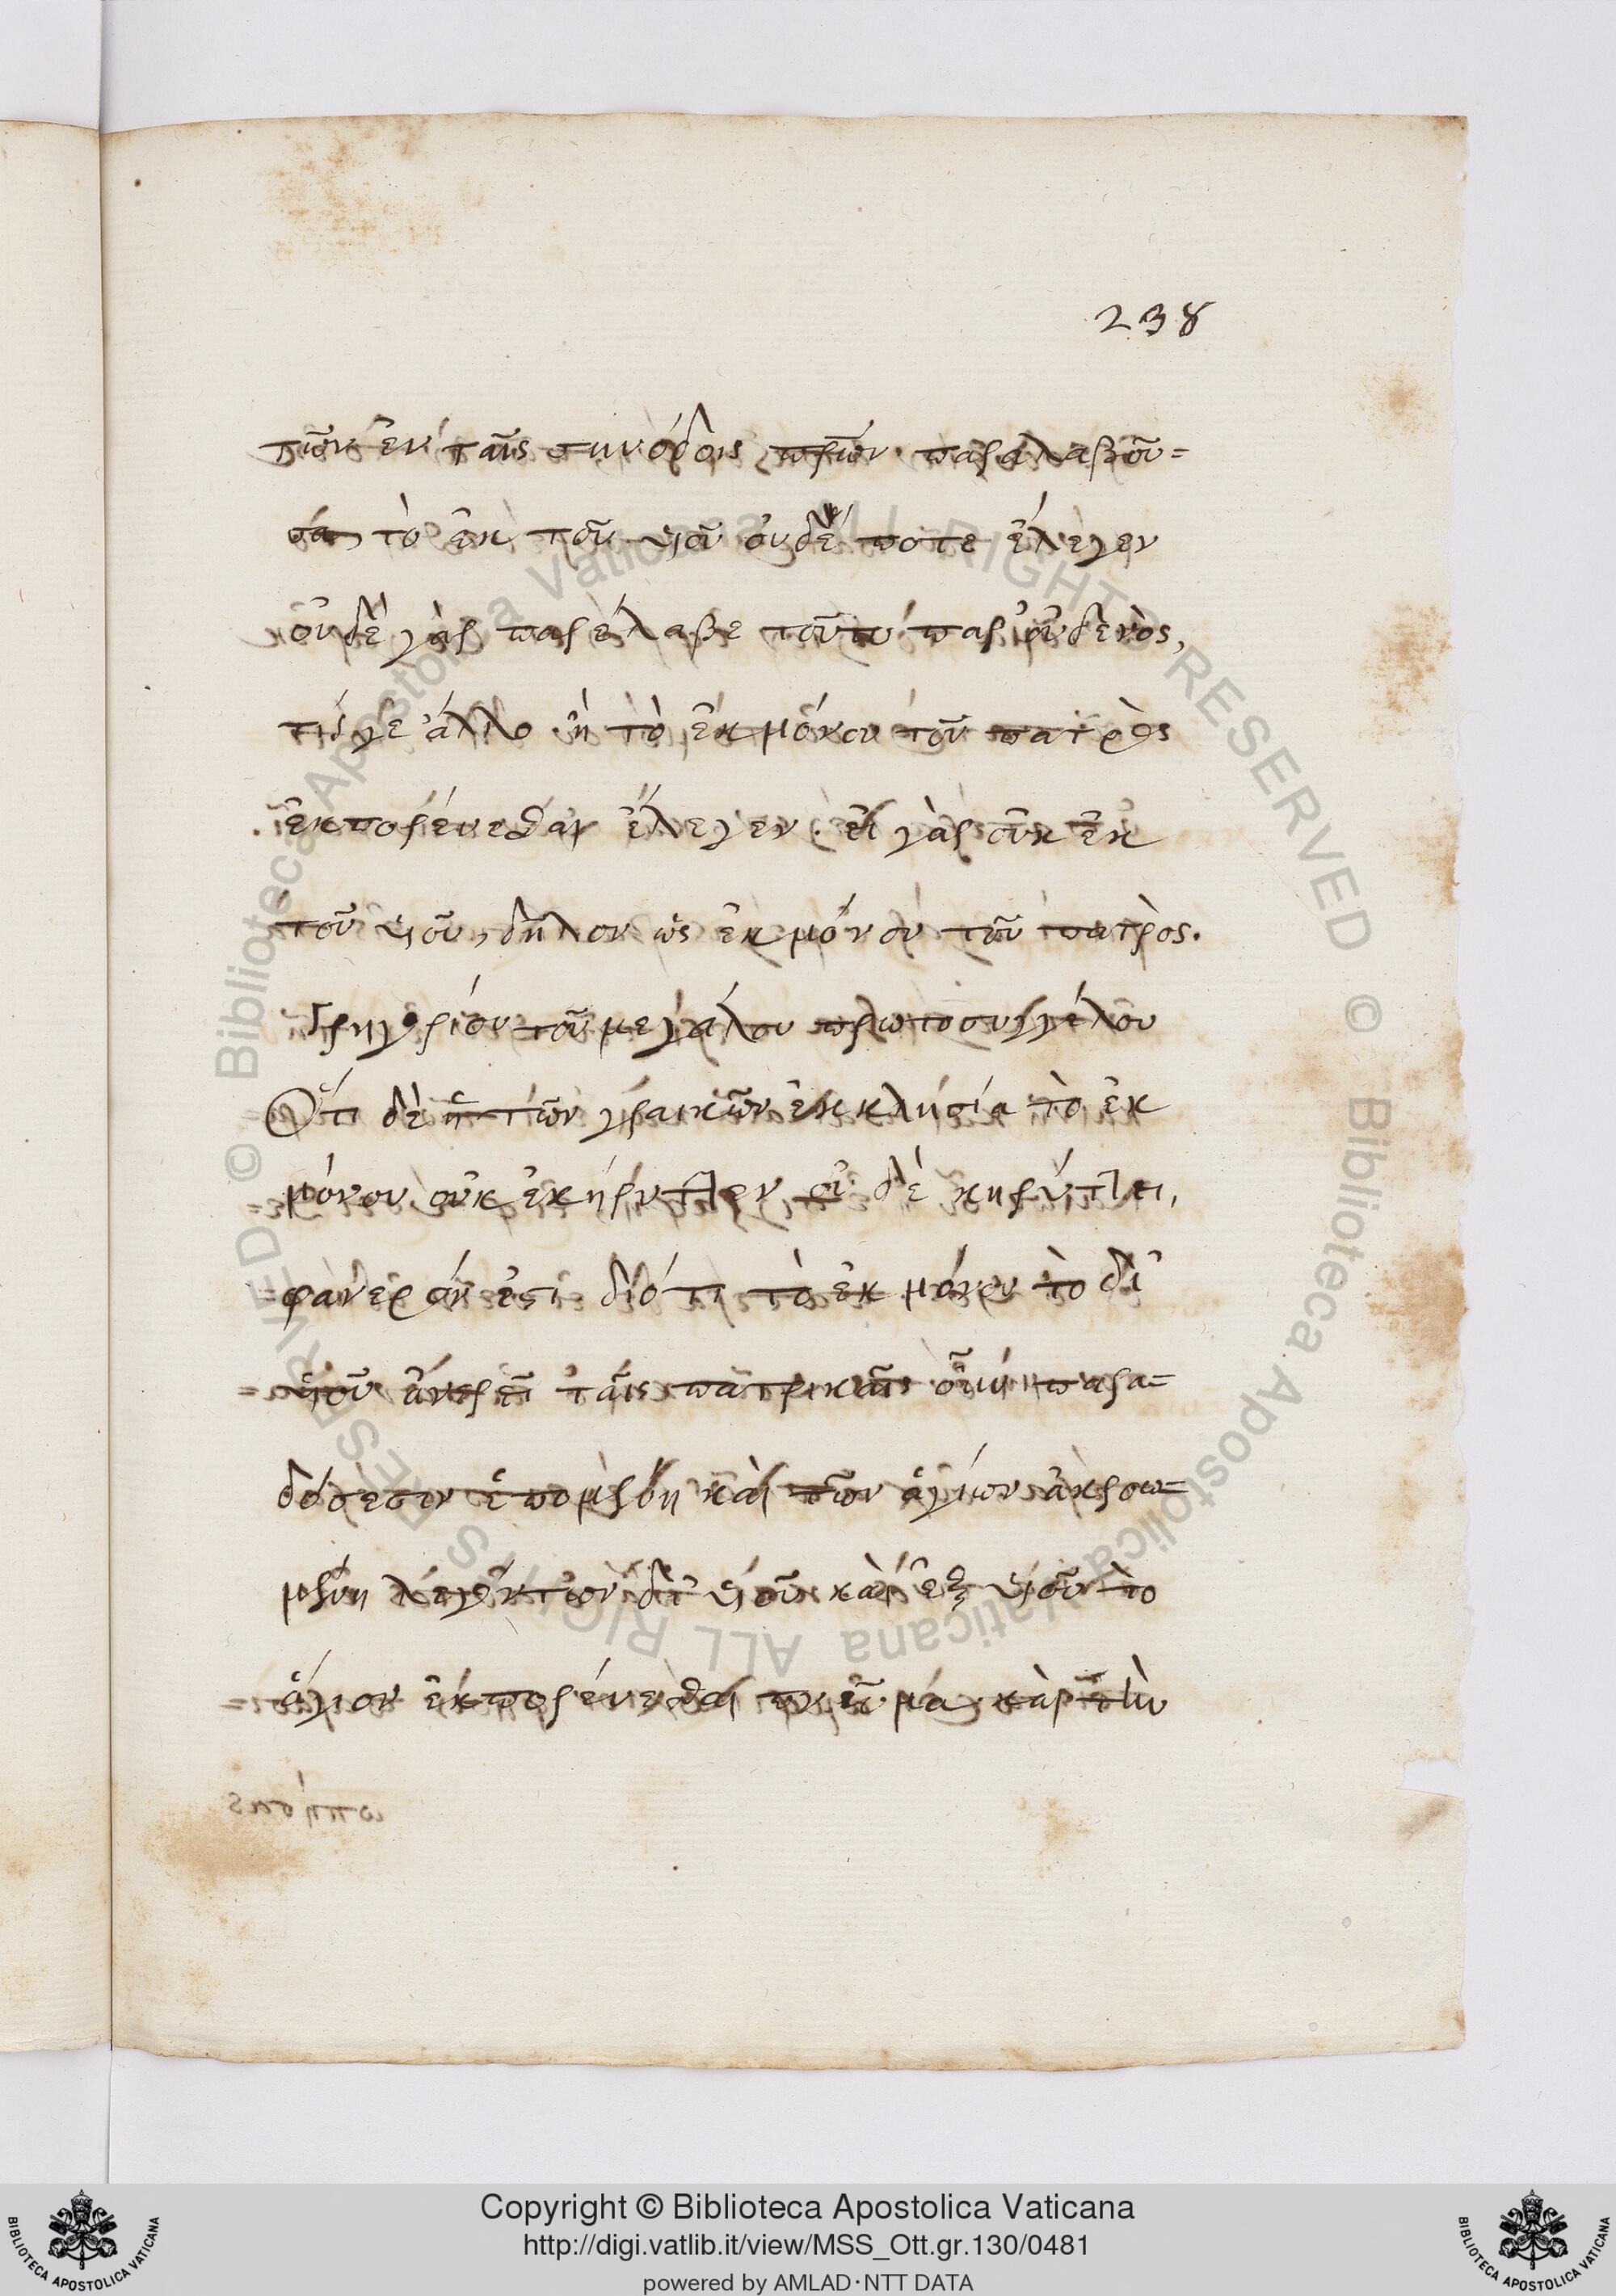 238
τῶν ἐν ταῖς συνόδοις πρῶν παραλαβοῦ=
σα, τὸ ἐκ τοῦ υἱοῦ οὐδέ ποτε ἔλεγεν
οὐδὲ γὰρ παρέλαβε τοῦτο παρ' οὐδενὸς,
τί γε ἄλλο ἢ τὸ ἐκ μόνου τοῦ πατρὸς
ἐκπορεύεσθαι ἔλεγεν. εἰ γὰρ οὐκ ἐκ
τοῦ υἱοῦ, δῆλον ὡς ἐκ μόνου τοῦ πατρὸς.
Γρηγορίου τοῦ μεγάλου πρωτοσυγγέλου
Ὅτι δὲ ἡ τῶν γραικῶν ἐκκλησία τὸ ἐκ
μόνου οὐκ ἐκήρυττεν οὐδὲ κηρύττει,
φανερόν ἐστι διότι τὸ ἐκ μόνου τὸ δι'
υἱοῦ ἀναιρεῖ ταῖς πατρικαῖς οὖν παρα=
δόσεσιν ἑπομένη καὶ τῶν ἁγίων ἀκροω=
μένη λεγόντων δι' υἱοῦ καὶ ἐξ υἱοῦ τὸ
ἅγιον ἐκπορεύεσθαι πνεῦμα, καὶ τὴν
Copyright © Biblioteca Apostolica Vaticana
http://digi.vatlib.it/view/MSS_Ott.gr.130/0481
powered by AMLAD·NTT DATA
© Biblioteca Apostolica Vaticana ALL RIGHTS RESERVED
© Biblioteca Apostolica Vaticana ALL RIGHTS RESERVED
BIBLIOTECA APOSTOLICA VATICANA
BIBLIOTECA APOSTOLICA VATICANA